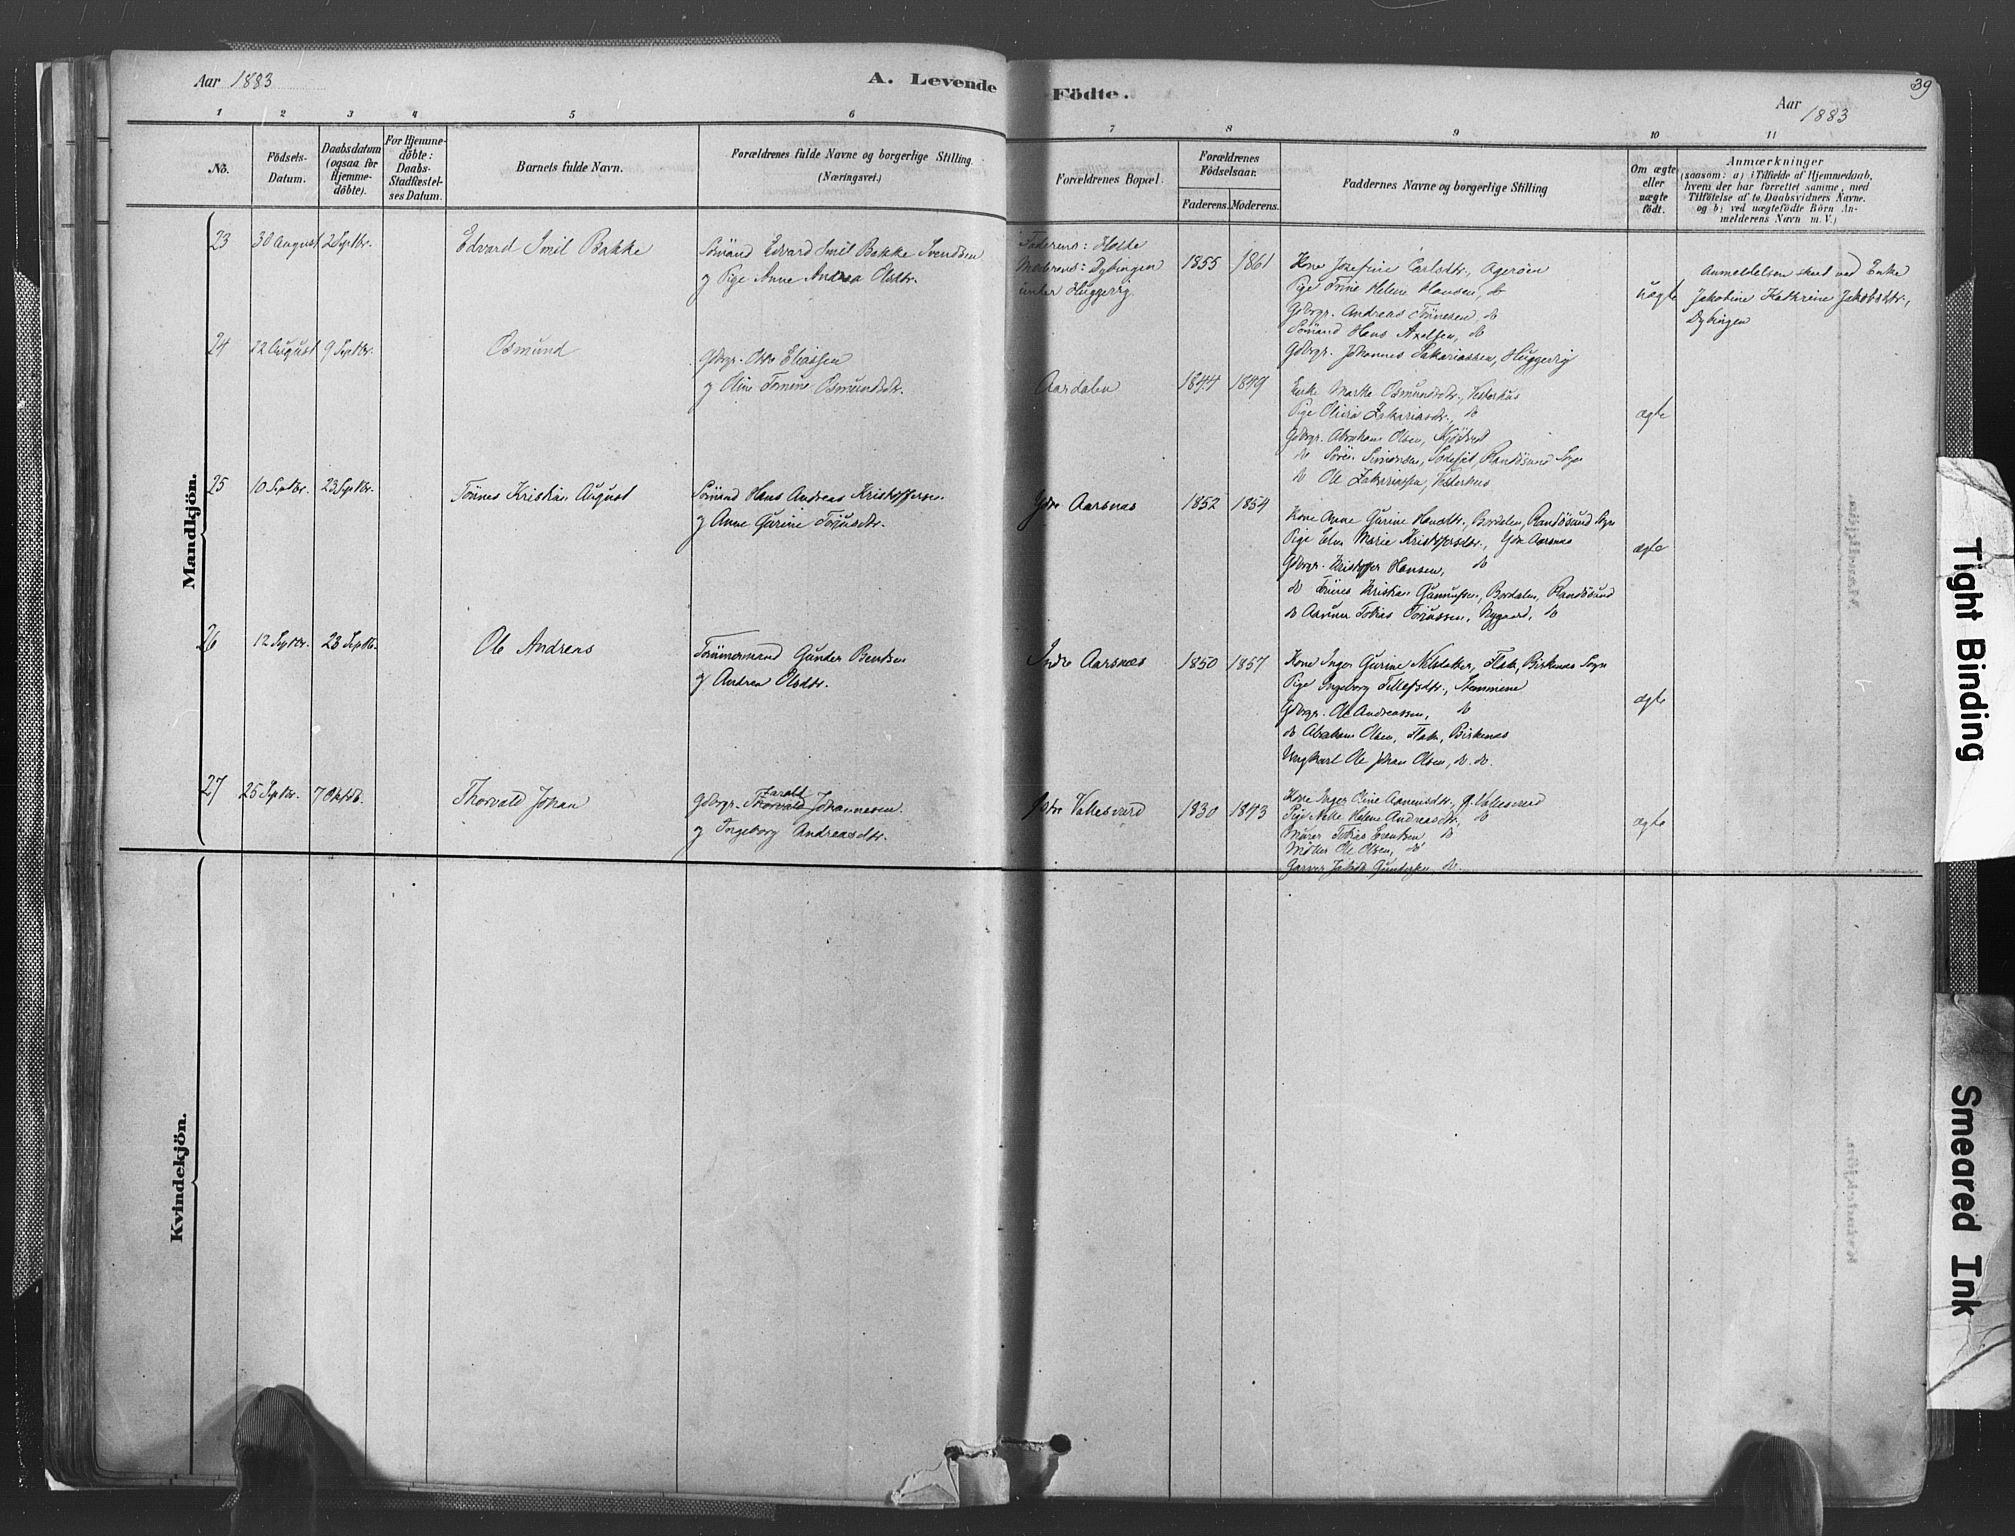 Aar 1883
A. Levende Födte.
Aar 1883
39
1 2 3 4 5 6 7 8 9 10 11
No.
Födsels-
Datum.
Daabsdatum
(ogsaa for
Hjemme-
döbte).
For Hjemme-
döbte:
Daabs-
Stadfæstel-
ses Datum.
Barnets fulde Navn.
Forældrenes fulde Navne og borgerlige Stilling.
(Næringsvei.)
Forældrenes Bopæl.
Forældrenes
Födselsaar.
Faderens. Moderens.
Faddernes Navne og borgerlige Stilling
Om ægte
eller
uægte
födt.
Anmærkninger
(saasom: a) i Tilfælde af Hjemmedaab,
hvem der har forrettet samme, med
Tilföielse af to Daabsvidners Navne.
og b) ved uægtefödte Börn An-
melderens Navn m. V.)
Mandkjön.
23
30 August
2 Septbr.
Edvard Emil Bakke
Sømand Edvard Emil Bakke Svendsen
og Pige Anne Andrea Olsdtr.
Faderens: Holte
Moderens: Dybingen
under Huggerig
1855
1861
Kone Josefine Carlsdtr., Agerøen
Pige Trine Helene Hansen, do
Gdbrgr. Andreas Tønnesen, do
Sømand Hans Axelsen, do
Gdbrgr. Johannes Sakariassen, Huggerig
uægte
Anmeldelsen skeet ved Enke
Jakobine Kathrine Jakobsdtr.,
Dybingen
24
22 August
9 Septbr.
Osmund
Gdbrgr. Eliassen
og Oline Tomine Osmundsdtr.
Aardalen
1844
1849
Enke Marthe Osmundsdtr., Vesterhus
Pige Zakariasdtr., do
Gdbrgr. Abraham Olsen,
do Søren Simonsen, Randøsund Sogn
do Ole Zakariassen, Vesterhus
ægte
25
10 Septbr.
23 Septbr.
Tønnes Kristian August
Sømand Hans Andreas Kristoffersen
og Anne Gurine Torjusdtr.
Ydre Aarsnæs
1852
1854
Kone Anne Gurine Hansdtr., Bordalen, Randøsund Sogn
Pige Marie Kristoffersdtr., Ydre Aarsnæs
Gdbrgr. Kristoffer Hansen, do
do Tønnes Kristian Gunnufsen, Bordalen, Randøsund
do Tobias Torjussen, Nygaard, do
ægte
26
12 Septbr.
23 Septbr.
Ole Andreas
Tømmermand Gunder Bentsen
og Andrea Olsdtr.
Indre Aarsnæs
1850
1857
Kone Inger Gurine, Flak, Birkenæs Sogn
Pige Ingeborg Tellefsdtr., Stemmene
Gdbrgr. Ole Andreassen, do
do Abraham Olsen, Flak, Birkenæs
Ungkarl Ole Johan Olsen, do. do.
ægte
27
25 Septbr.
7 Oktob.
Thorvald Johan
Gdbrgr. Thorvald Johannesen
og Ingeborg Andreasdtr.
Vallesværd
1830
1843
Kone Inger Oline, Vallesværd
Pige Helene Andreasdtr., do
Murer Tobias do
Møller Ole Olsen, do
Garver Jakob Gundersen, do
ægte
Kvindekjön.
Tight Binding
Smeared Ink